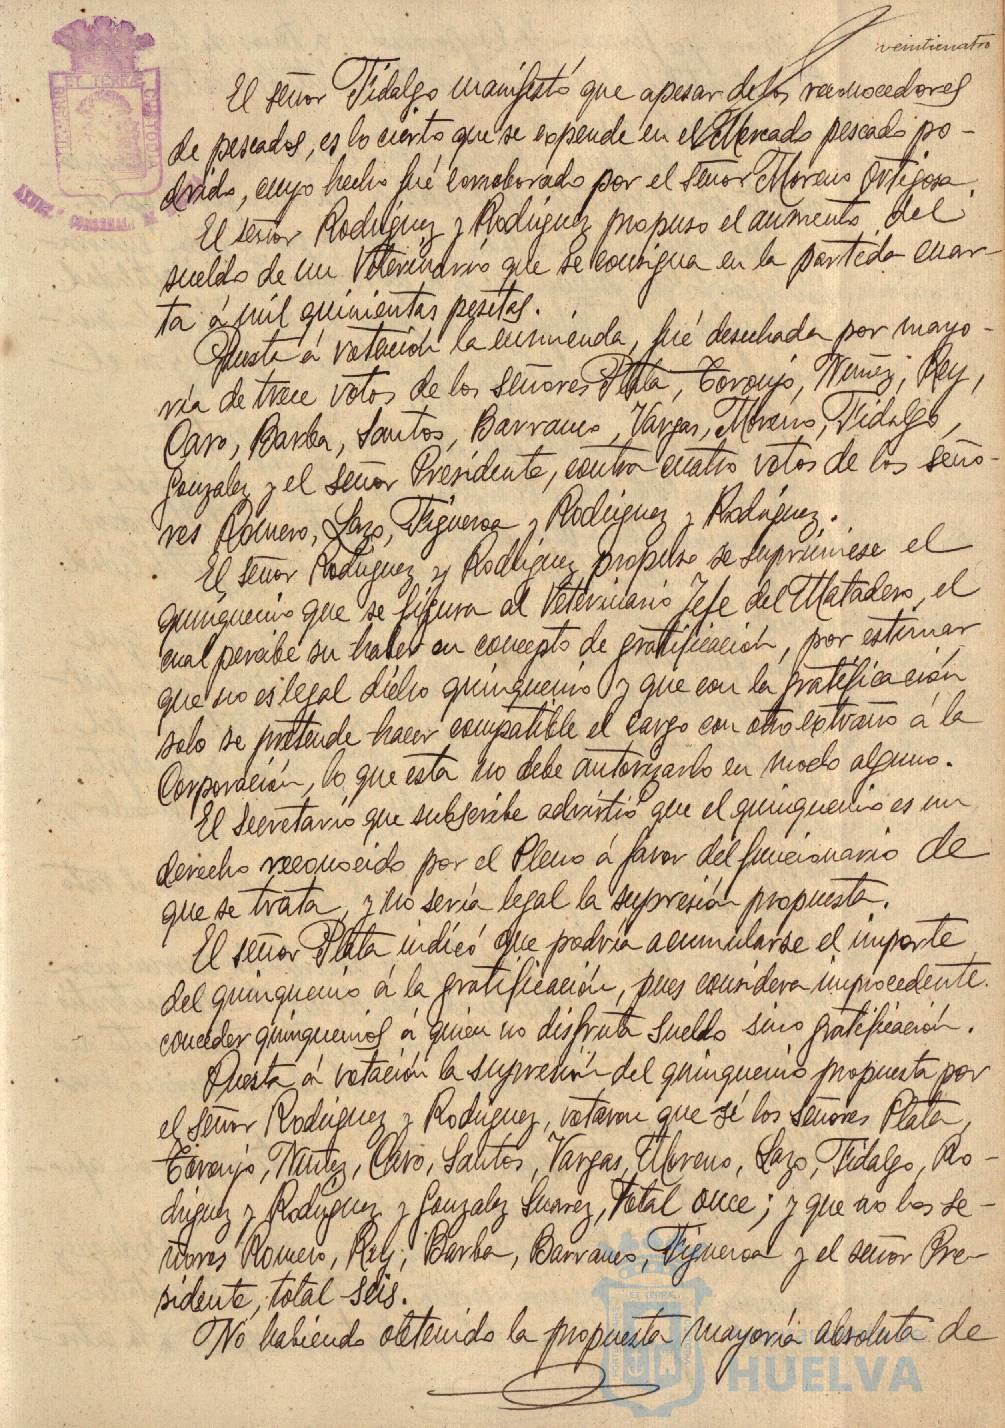 veinticuatro
El señor Fidalgo manifestó que apesar de los reconocedores
de pescados, es lo cierto que se expende en el Mercado pescado po-
drido, cuyo hecho fué corroborado por el señor Moreno Ortigosa.
El señor Rodriguez y Rodriguez propuso el aumento del
sueldo de un Veterinario que se consigna en la partida cuar-
ta á mil quinientas pesetas.
Puesta á votación la enmienda, fué desechada por mayo-
ría de trece votos de los señores Plata, Toronjo, Nuñez, Rey,
Caro, Barba, Santos, Barranco, Vargas, Moreno, Fidalgo,
Gonzalez y el señor Presidente, contra cuatro votos de los seño-
res Romero, Lazo, Figueroa y Rodriguez y Rodriguez.
El señor Rodriguez y Rodriguez propuso se suprimiese el
quinquenio que se figura al Veterinario Jefe del Matadero, el
cual percibe su haber en concepto de gratificación, por estimar
que no es legal dicho quinquenio y que con la gratificación
solo se pretende hacer compatible el cargo con otro extraño á la
Corporación, lo que esta no debe autorizarlo en modo alguno.
El Secretario que subscribe advirtió que el quinquenio es un
derecho reconocido por el Pleno á favor del funcionario de
que se trata, y no sería legal la supresión propuesta.
El señor Plata indicó que podría acumularse el importe
del quinquenio á la gratificación, pues considera improcedente
conceder quinquenios á quien no disfruta sueldo sino gratificación.
Puesta á votación la supresión del quinquenio propuesta por
el señor Rodriguez y Rodriguez, votaron que sí los señores Plata,
Toronjo, Nuñez, Caro, Santos, Vargas, Moreno, Lazo, Fidalgo, Ro-
driguez y Rodriguez y Gonzalez Suarez, total once; y que no los se-
ñores Romero, Rey, Barba, Barranco, Figueroa y el señor Pre-
sidente, total seis.
No habiendo obtenido la propuesta mayoría absoluta de
HUELVA